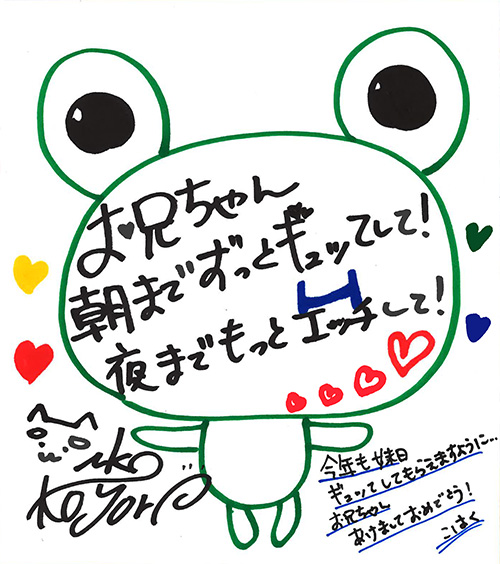 お兄ちゃん
朝までずっとギュッてして!
H
夜までもっとエッチして!
今年も妹日
ギュッてしてもらえますように…
お兄ちゃん
あけましておめでとう!
こはく